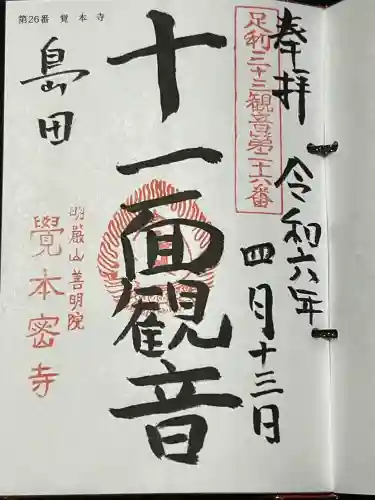 第26番 覺本寺
奉拝
足利三十三観音第二十六番
令和六年
四月十三日
十一面観音
島田
明巌山善明院
覺本密寺